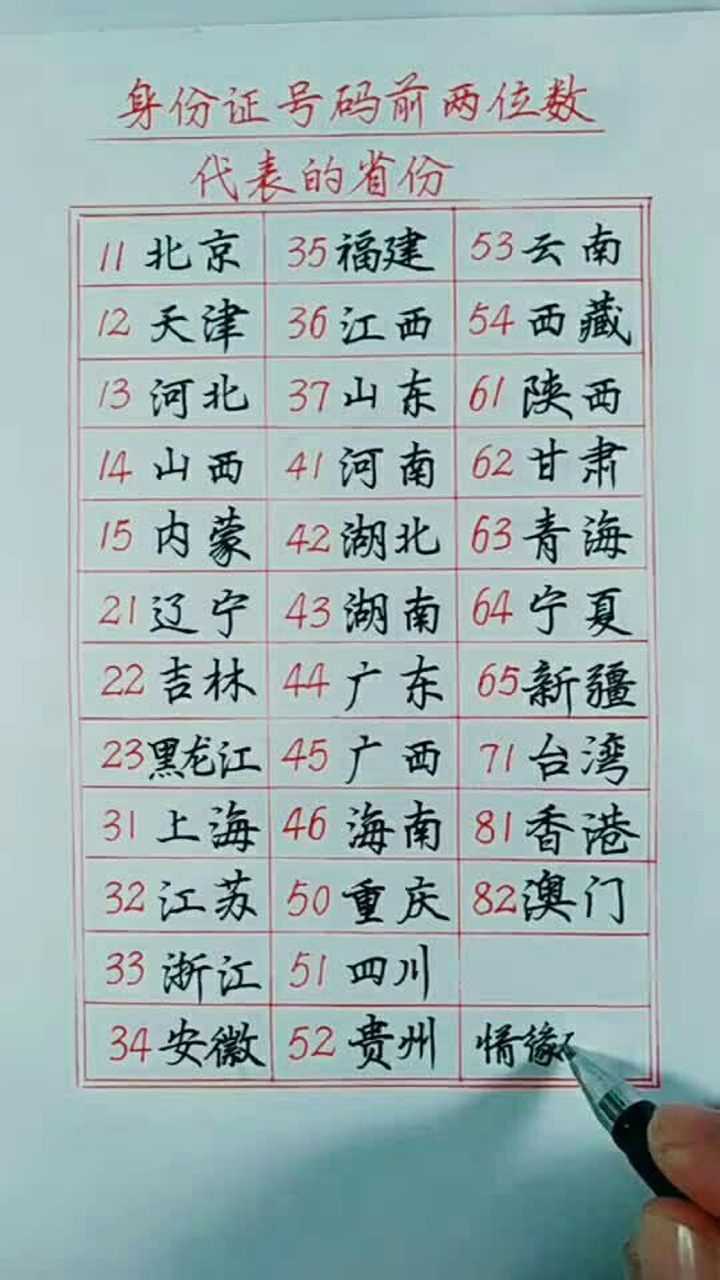 身份证号码前两位数
代表的省份
11 北京 35 福建 53 云南
12 天津 36 江西 54 西藏
13 河北 37 山东 61 陕西
14 山西 41 河南 62 甘肃
15 内蒙 42 湖北 63 青海
21 辽宁 43 湖南 64 宁夏
22 吉林 44 广东 65 新疆
23 黑龙江 45 广西 71 台湾
31 上海 46 海南 81 香港
32 江苏 50 重庆 82 澳门
33 浙江 51 四川
34 安徽 52 贵州 情缘